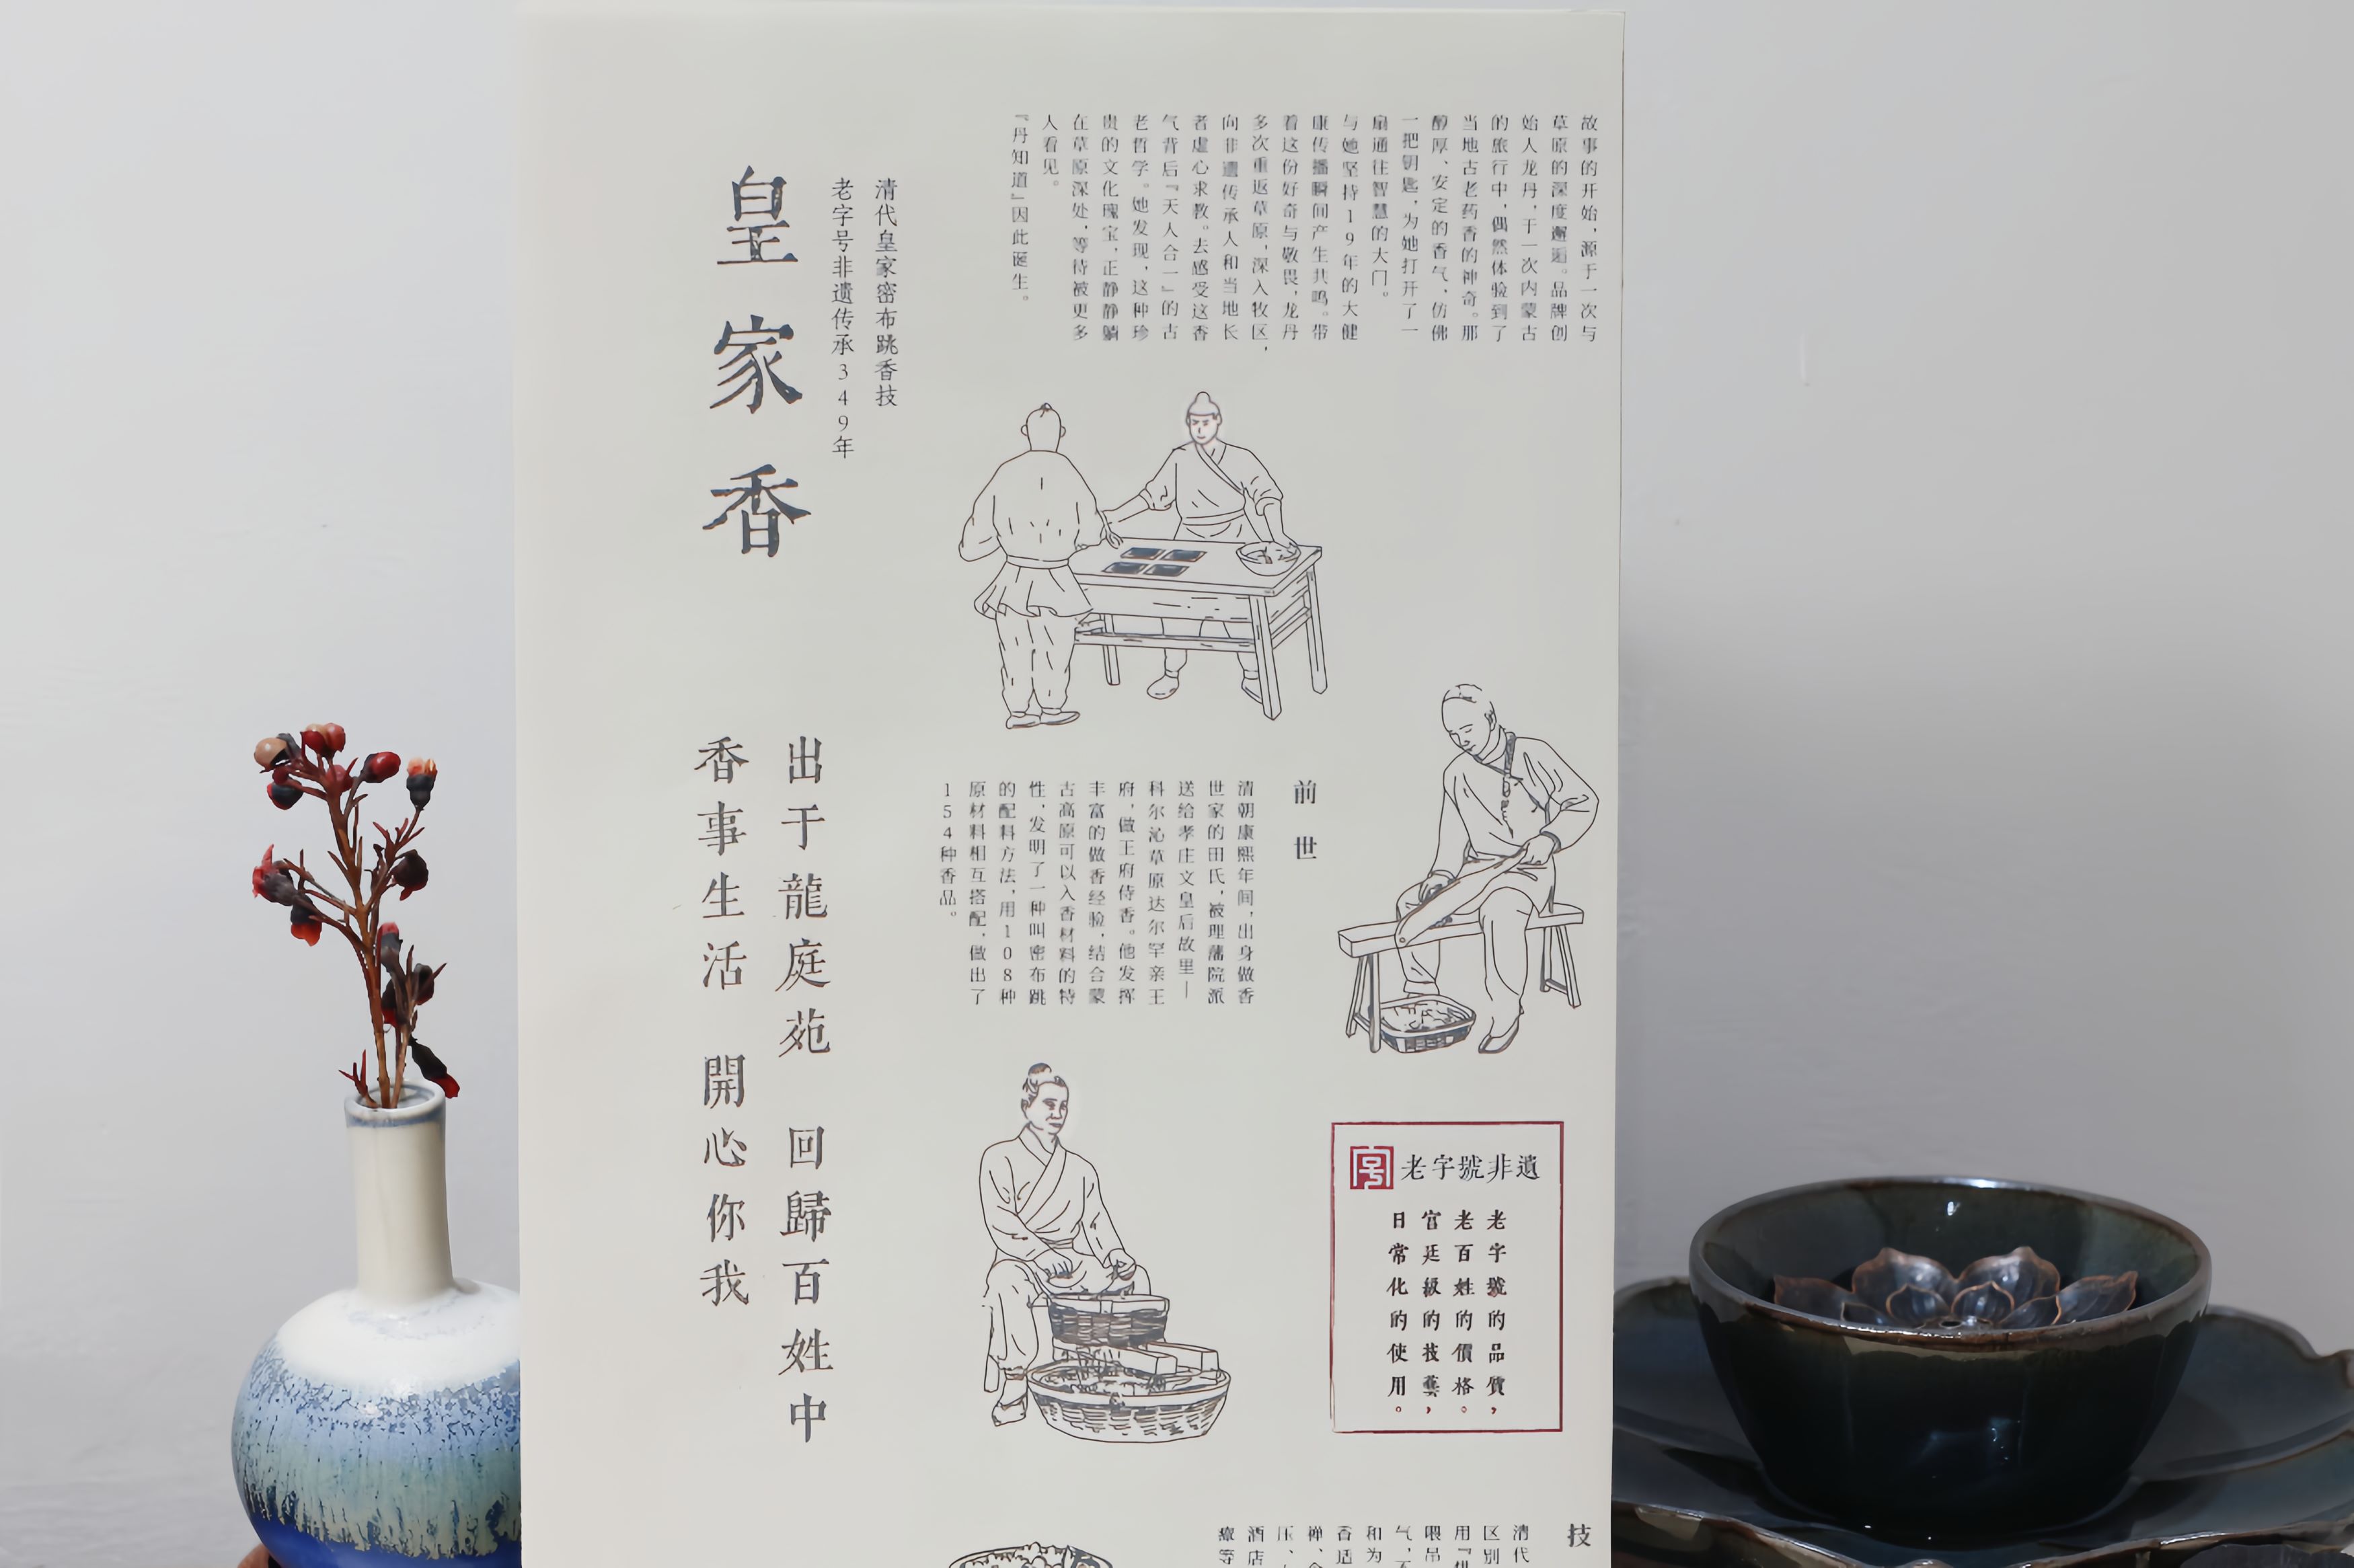 故事的开始，源于一次与
草原的深度邂逅。品牌创
始人龙丹，于一次内蒙古
的旅行中，偶然体验到了
当地古老药香的神奇。那
醇厚、安定的香气，仿佛
一把钥匙，为她打开了一
扇通往智慧的大门。
与她坚持19年的大健
康传播瞬间产生共鸣。带
着这份好奇与敬畏，龙丹
多次重返草原，深入牧区，
向非遗传承人和当地长
者虚心求教。去感受这香
气背后『天人合一』的古
老哲学。她发现，这种珍
贵的文化瑰宝，正静静躺
在草原深处，等待被更多
人看见。
『丹知道』因此诞生。
清代皇家密布跳香技
老字号非遗传承349年
皇家香
前世
清朝康熙年间，出身做香
世家的田氏，被理藩院派
送给孝庄文皇后故里—
科尔沁草原达尔罕亲王
府，做王府侍香。他发挥
丰富的做香经验，结合蒙
古高原可以入香材料的特
性，发明了一种叫密布跳
的配料方法，用108种
原材料相互搭配，做出了
154种香品。
出于龍庭苑 回歸百姓中
香事生活 開心你我
老字號非遺
老字號的品質，
老百姓的價格。
宮廷級的技藝，
日常化的使用。
技
清代
区别
用『
和为
香适
禅、
压、
酒店